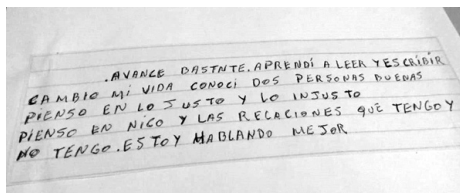 .AVANCE BASTNTE.APRENDÍ A LEER Y ESCRIBIR
CAMBIO MI VIDA CONOCI DOS PERSONAS BUENAS
PIENSO EN LO JUSTO Y LO INJUSTO
PIENSO EN NICO Y LAS RELACIONES QUE TENGO Y
NO TENGO.ESTOY HABLANDO MEJOR